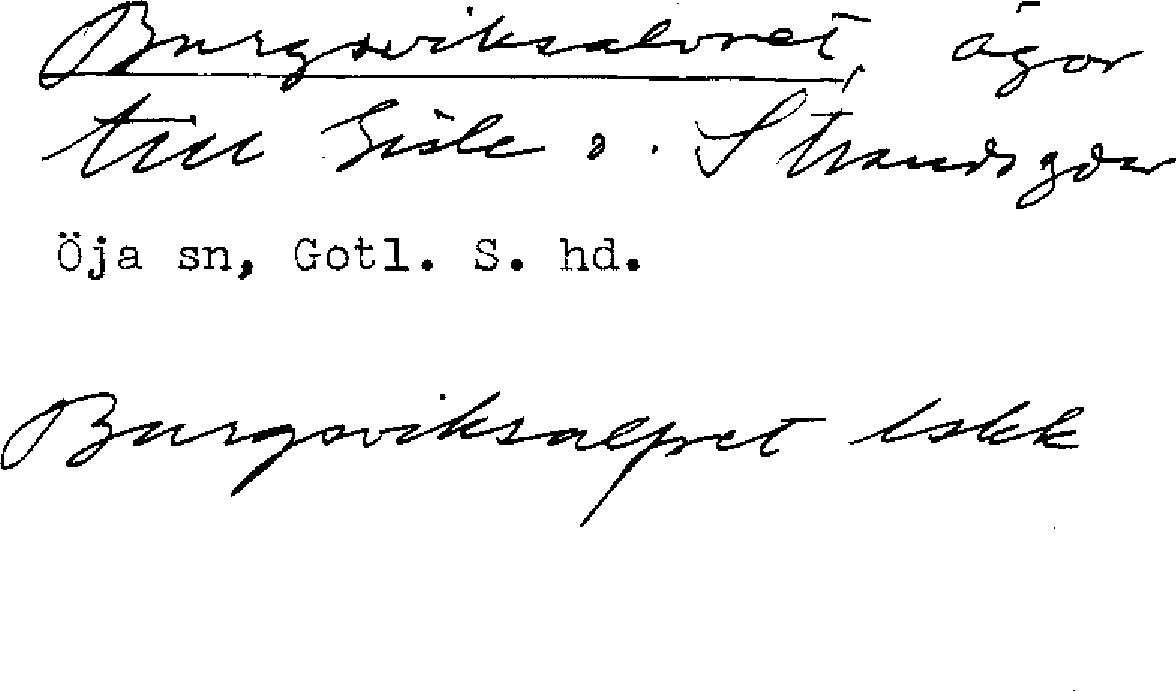 Burgsviksalvret, ägor
till Gisle o. Strands gdar
Öja sn, Gotl. S. hd.
Burgsviksalpret